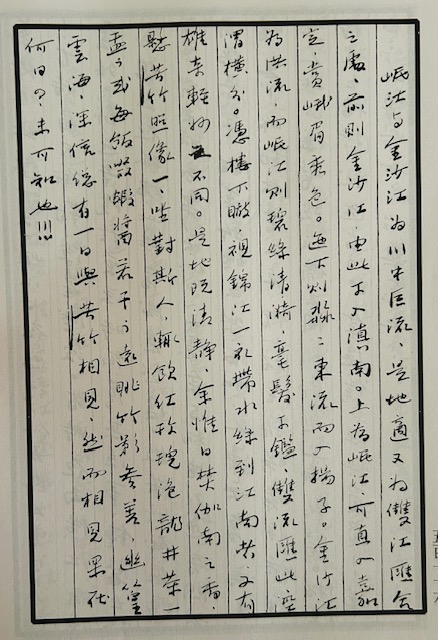 岷江与金沙江為川中巨流，是地適又為雙江匯合
之處，前則金沙江，由此可入滇南。上為岷江，可直入嘉
定，賞峨眉秀色。下則淼淼東流而入揚子。金沙江
為洪流，而岷江則碧綠清漪，毫髮可鑑，雙流匯此涇
渭橫分。憑樓下瞰，視錦江一衣帶水綠到江南者，又有
雄奇輕妙之不同。是地既清静，余惟日焚伽南之香，
懸苦竹照像一，坐對斯人，輒飲紅玫瑰泡龍井茶一
盃，或每飯噉蝦醬若干，遠眺竹影參差，幽篁
雲海，深信總有一日與苦竹相見，然而相見果在
何日？未可知也!!!